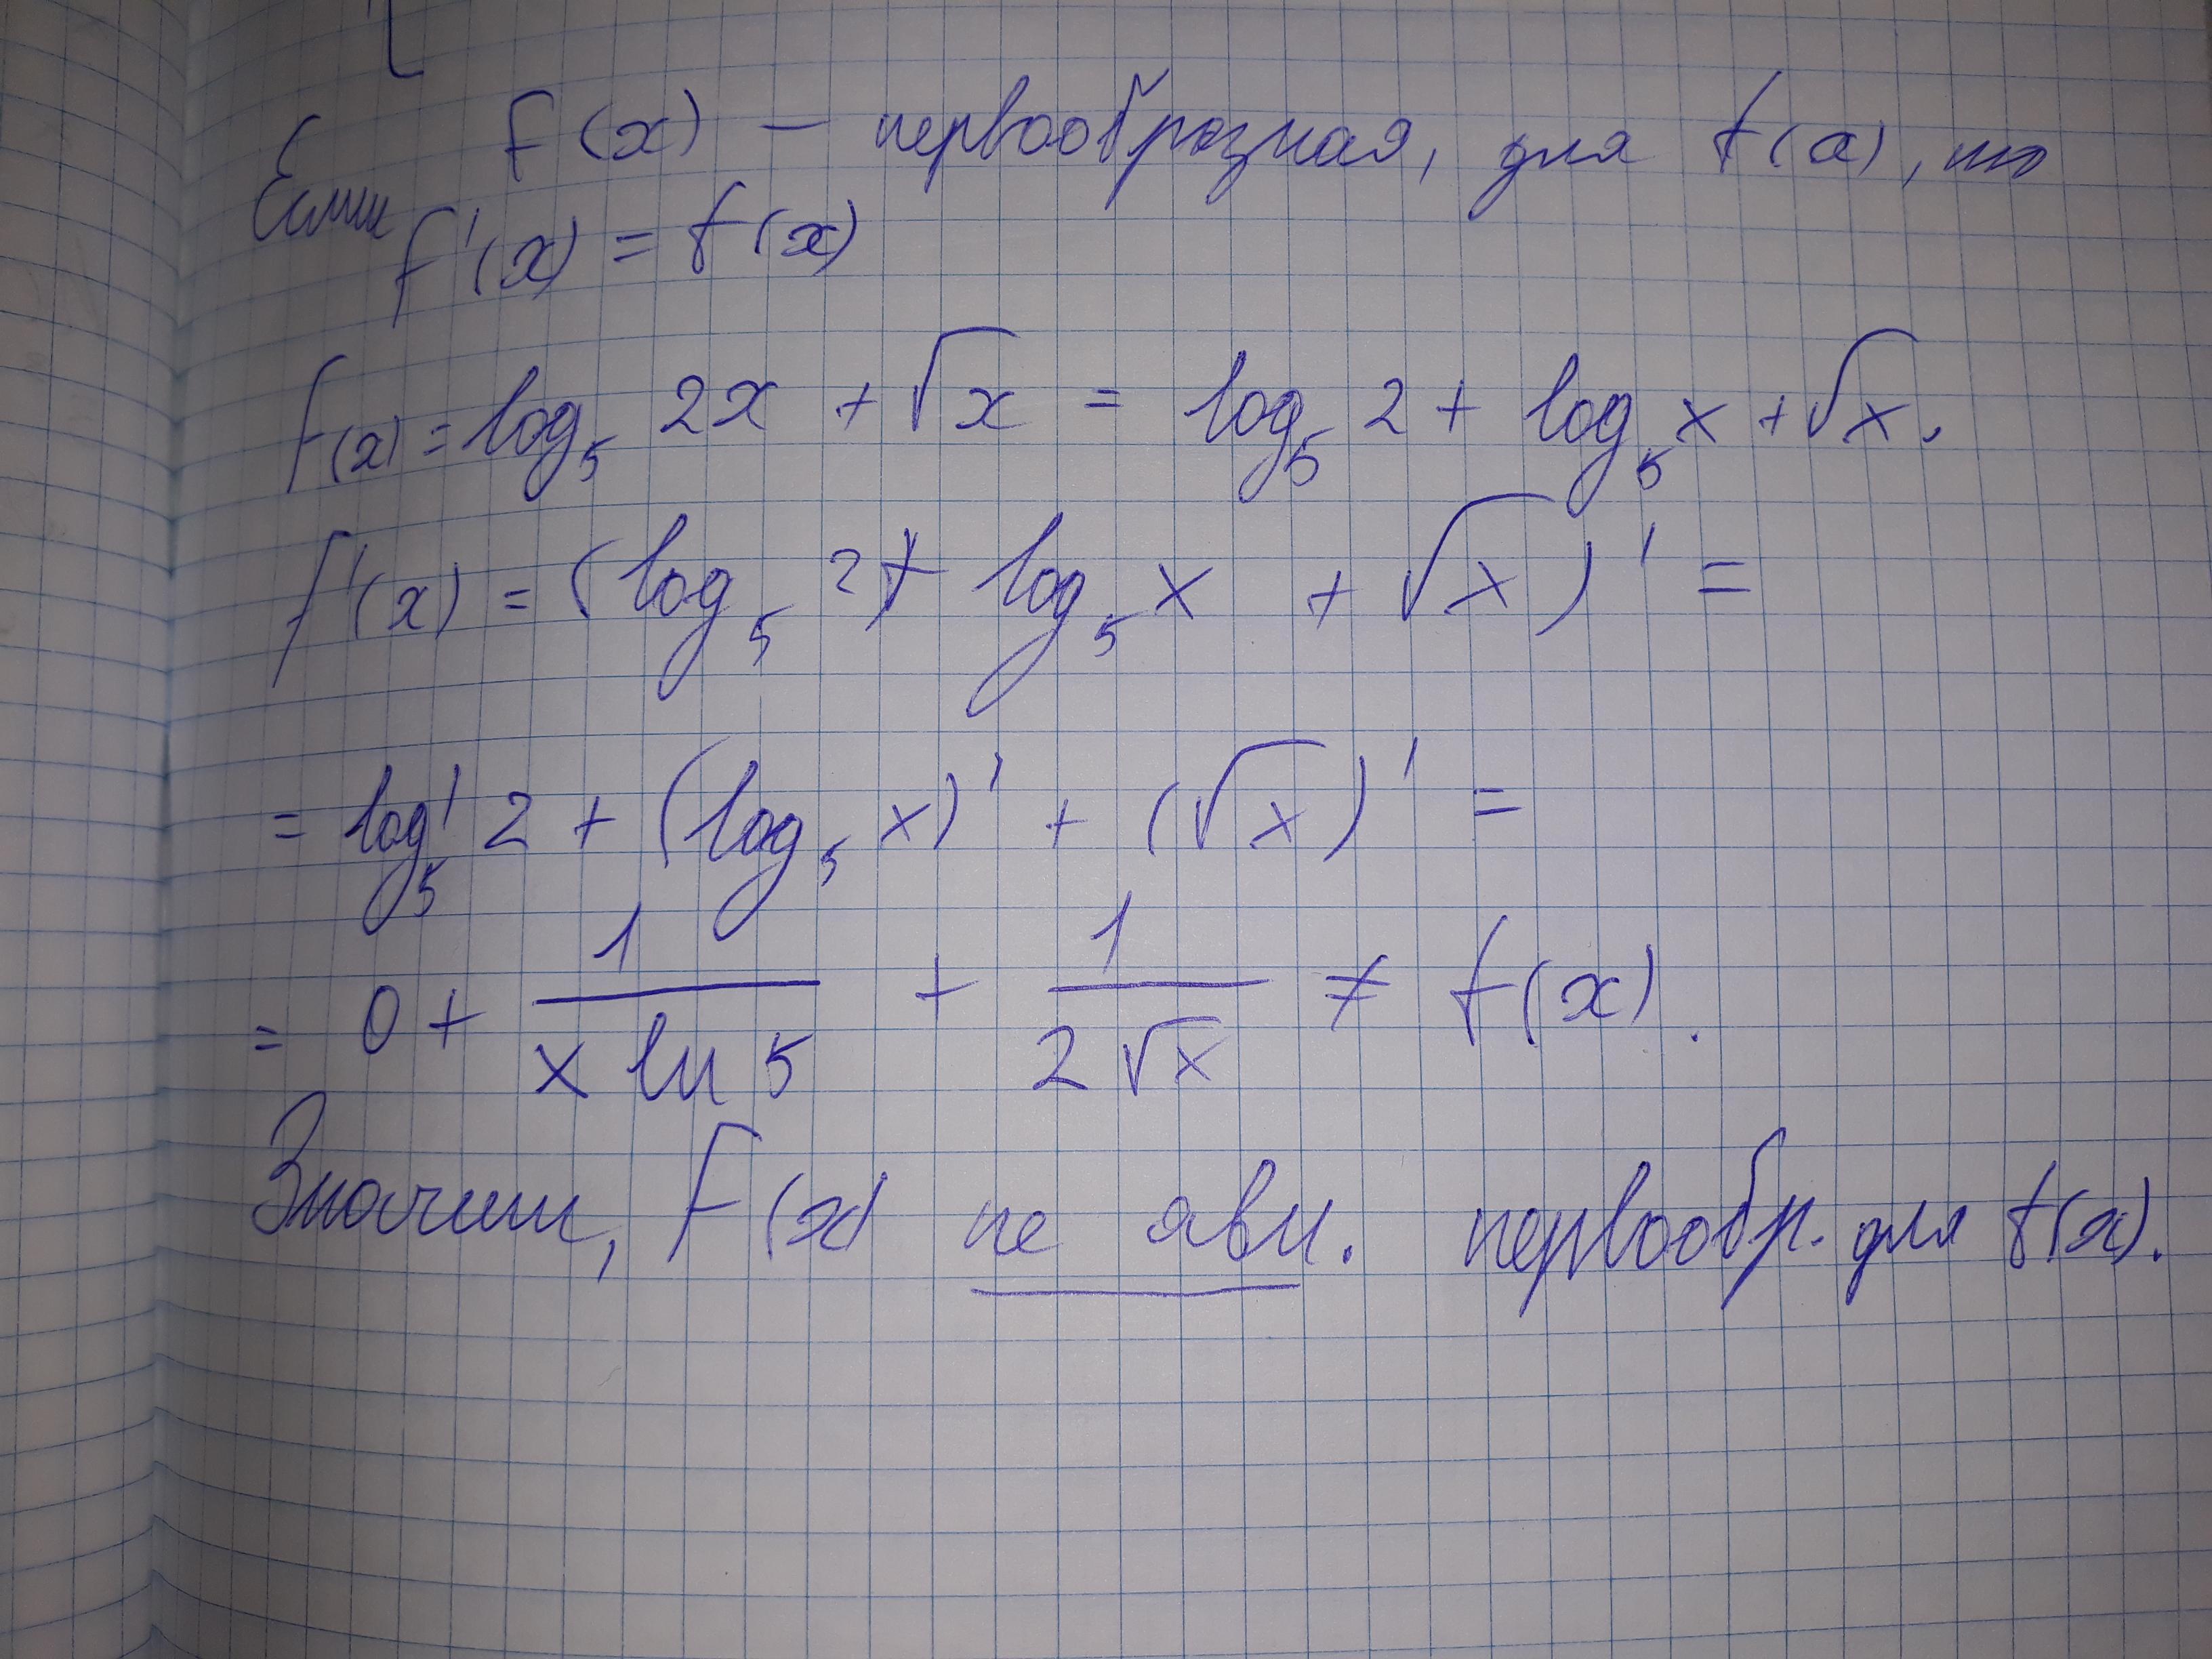 Если F(x) – первообразная, для f(x), то
F'(x) = f(x)
F(x) = log₅ 2x + √x = log₅ 2 + log₅ x + √x.
F'(x) = (log₅ 2 + log₅ x + √x)' =
= log₅' 2 + (log₅ x)' + (√x)' =
= 0 + 1/(x ln 5) + 1/(2√x) ≠ f(x).
Значит, F(x) не явл. первообр. для f(x).